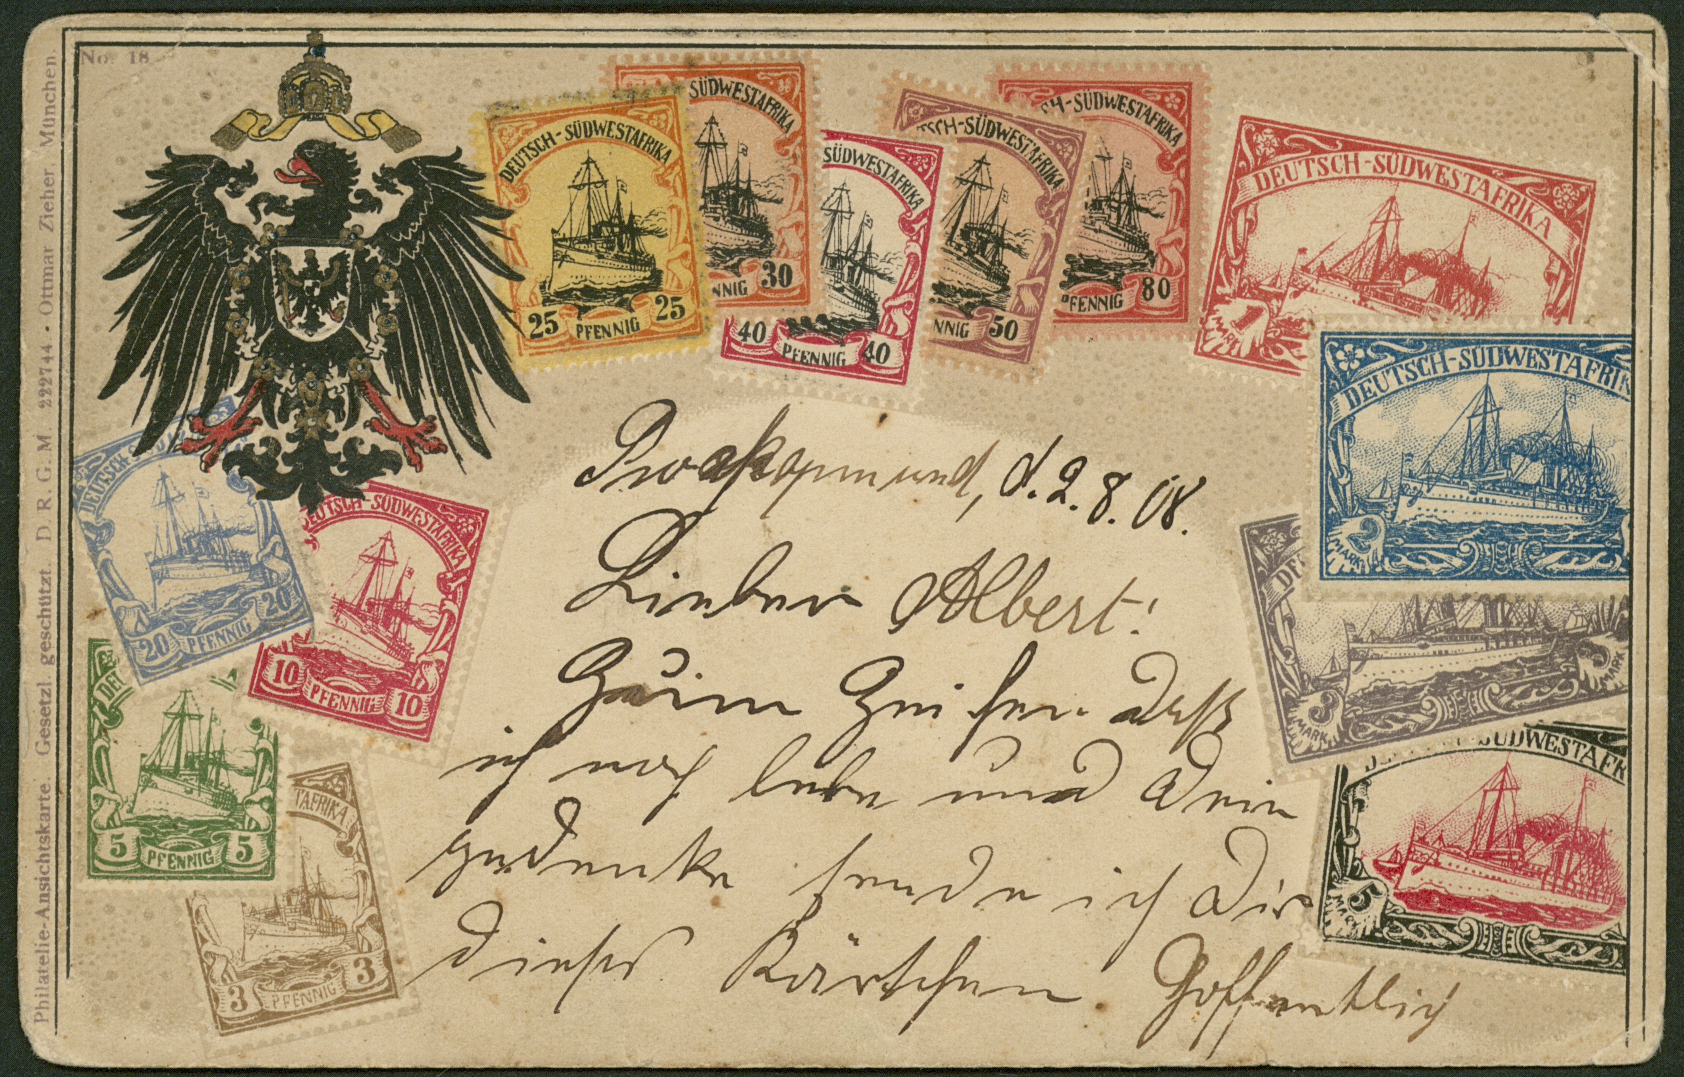 No. 18
Philatelie-Ansichtskarte. Gesetzl. geschützt. D. R. G. M. 222744 • Ottmar Zieher, München.
DEUTSCH-SÜDWESTAFRIKA
25 PFENNIG 25
SÜDWESTAFRIKA
NNIG 30
SÜDWESTAFRIKA
40 PFENNIG 40
TSCH-SÜDWESTAFRIKA
NNIG 50
CH-SÜDWESTAFRIKA
PFENNIG 80
DEUTSCH-SÜDWESTAFRIKA
1 MARK
DEUTSCH-SÜDWESTAFRIK
2 MARK
DE
3 MARK
3 MARK
SÜDWESTAFR
5 MARK
DEUTSCH
20 PFENNIG 20
DEUTSCH-SÜDWESTAFRIKA
10 PFENNIG 10
DEU
5 PFENNIG 5
TAFRIKA
3 PFENNIG 3
Swakopmund, d. 2.8.08.
Lieber Albert!
Zum Zeichen daß
ich noch lebe und Dein
gedenke sende ich Dir
dieses Kärtchen. Hoffentlich